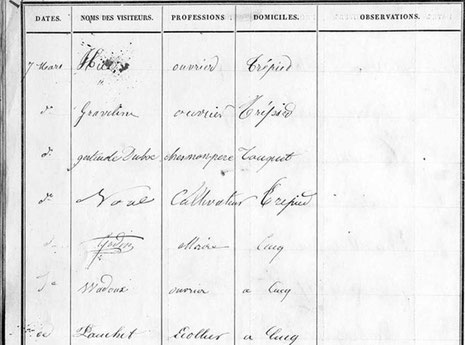 DATES. NOMS DES VISITEURS. PROFESSIONS DOMICILES. OBSERVATIONS.
7 Mars ouvrier Trépied
do Graveline ouvrier Trépied
do gertrude Duboc chesmonpere Touquet
do Noal Cultivateur Trepied
do Maire Cucq
do Wadoux ouvrier a Cucq
Pauchet Ecollier a Cucq